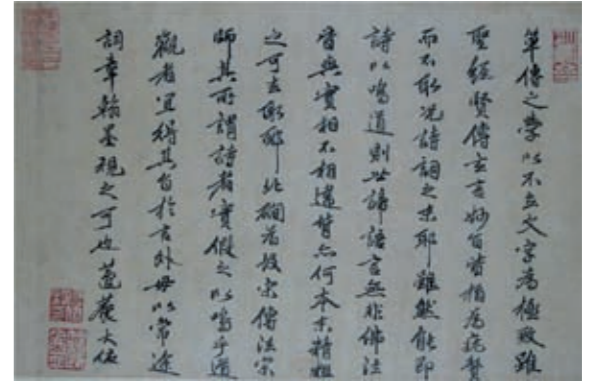 單傳之學以不立文字為極致雖
聖經賢傳玄言妙旨皆指為疣贅
而不取况詩詞之末耶雖然能即
詩以鳴道則世諦語言無非佛法
皆與實相不相違背亦何本末精粗
之可去取耶北磵為故宋傳法宗
師其所謂詩者實假之以鳴乎道
觀者宜得其旨於言外毋以常途
詞章翰墨視之可也蘧菴大佑